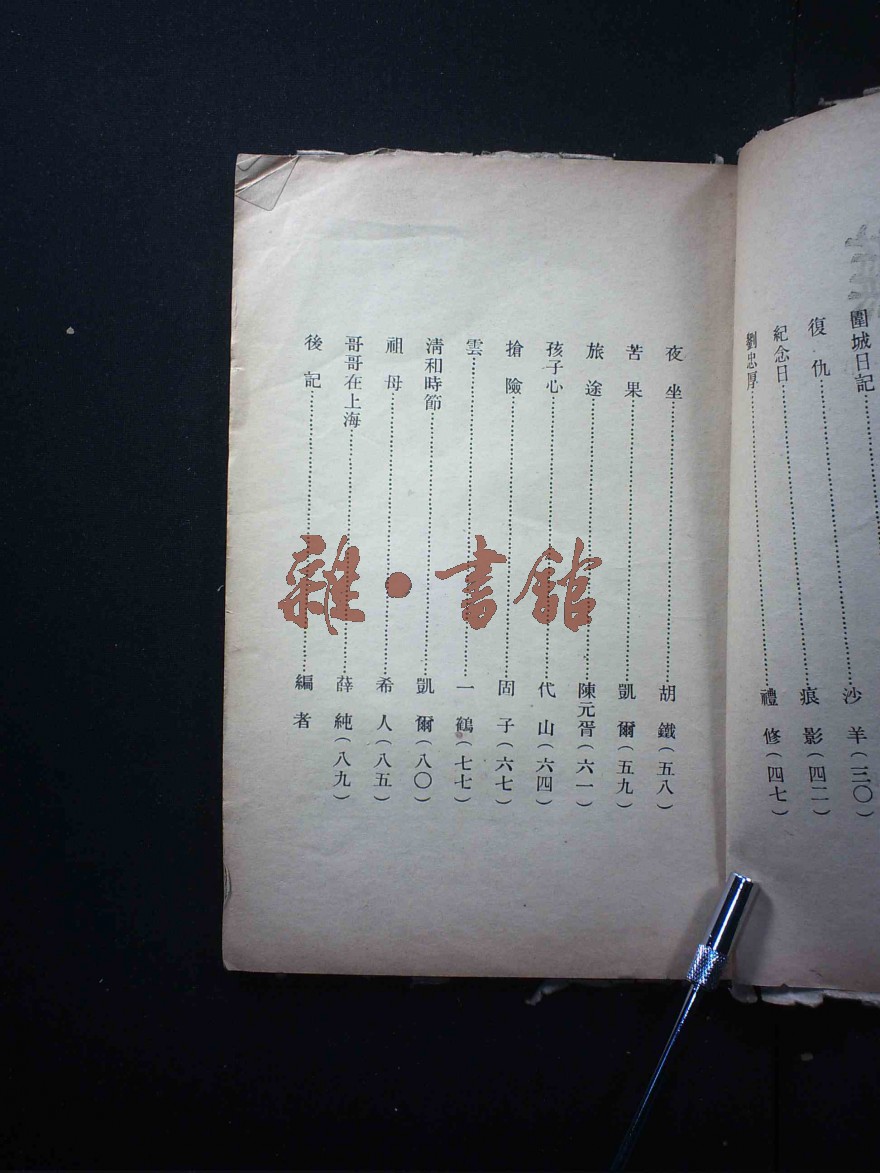 圍城日記……沙羊(三〇)
復仇……痕影(四二)
紀念日……禮修(四七)
劉忠厚
夜坐……胡鐵(五八)
苦果……凱爾(五九)
旅途……陳元胥(六一)
孩子心……代山(六四)
搶險……固子(六七)
雲……一鶴(七七)
淸和時節……凱爾(八〇)
祖母……希人(八五)
哥哥在上海……薛純(八九)
後記……編者
雜·書館